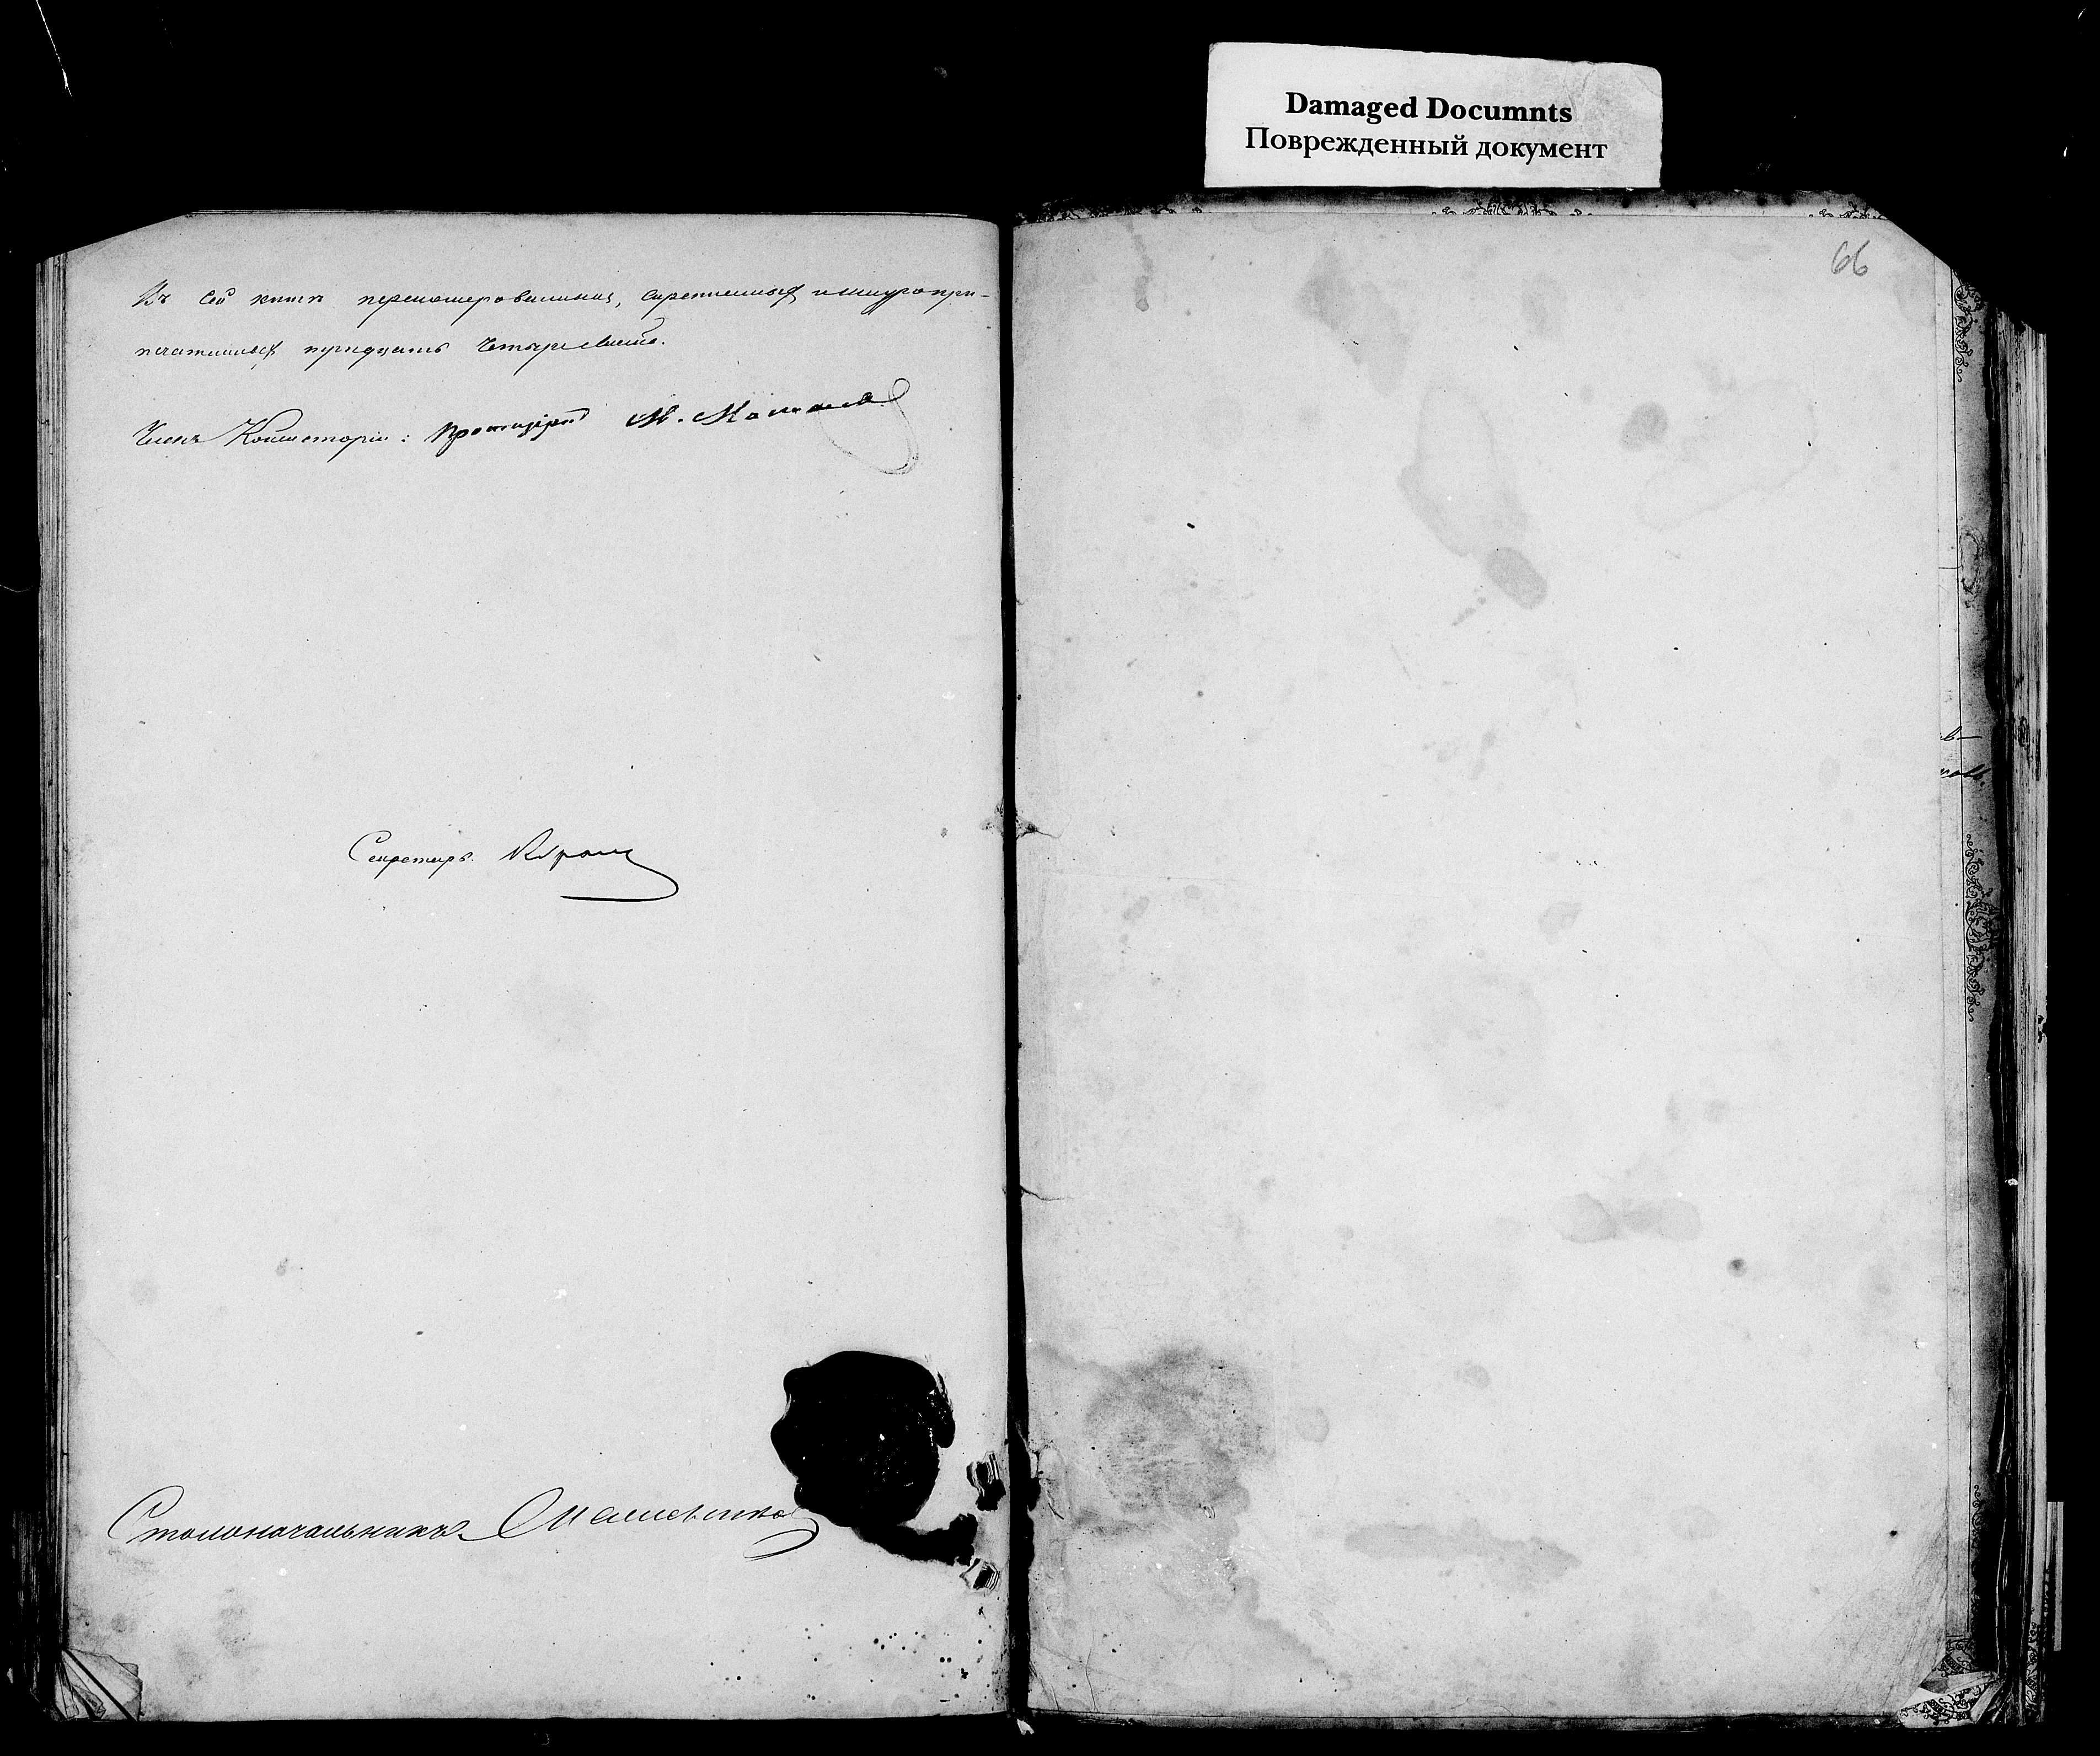 Damaged Documnts
Поврежденный документ
66
Въ сей книгѣ перенумерованныхъ, скрепленныхъ и шнуропри-
печатанныхъ тридцать четыре листа.
Членъ Консисторіи: Протоіерей М.
Секретарь
Столоначальникъ